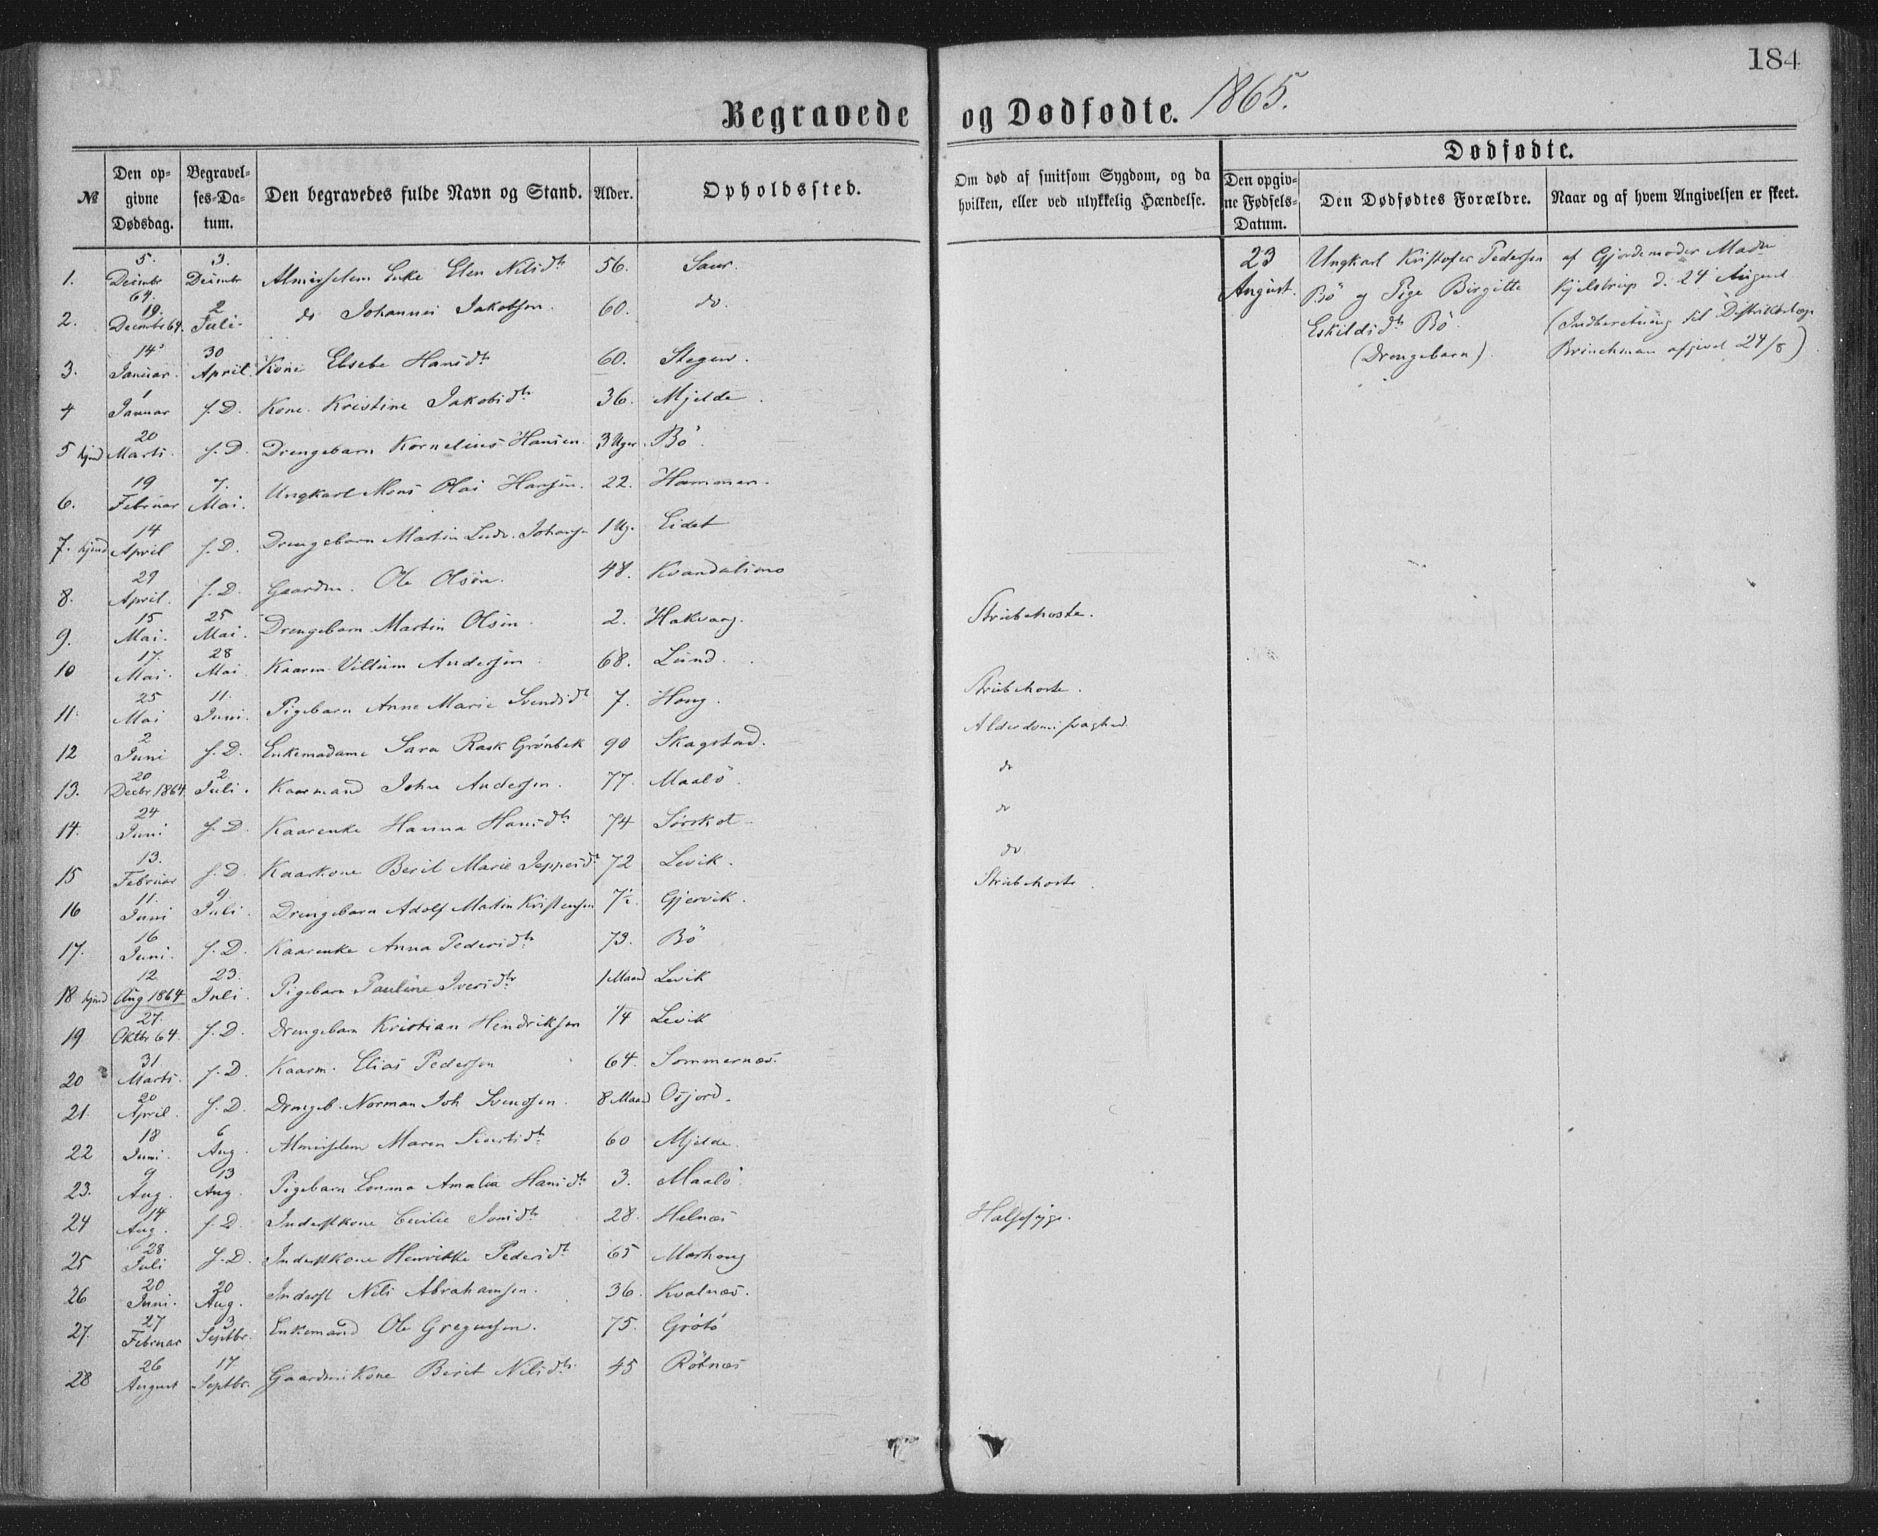 184
Begravede og Dødfødte. 1865.
№ Den opgivne Dødsdag. Begravelses-Datum. Den begravedes fulde Navn og Stand. Alder. Opholdssted. Om død af smitsom Sygdom, og da hvilken, eller ved ulykkelig Hændelse.
Dødfødte.
Den opgivne Fødsels-Datum. Den Dødfødtes Forældre. Naar og af hvem Angivelsen er skeet.
1. 5. Decmbr 64. 3. Decmbr Almisselem Enke Elen Nilsdtr 56. Saur.
2. 19 Decmbr 64 2 Juli do Johannes Jakobsen. 60. do.
3. 14 Januar. 30 April. Kone Elsebe Hansdtr 60. Stegen.
4 1 Januar s. D. Kone. Kristine Jakobsdtr 36. Mjelde.
5 hjmd 20 Marts. s. D. Drengebarn Kornelius Hansen. 3 Uger. Bö.
6. 19 Februar 7. Mai. Ungkarl Mons Olai Hansen. 22. Hammer.
7. hjmd 14 April s. D. Drengebarn Martin Ludv. Johansn 1 Ug. Eidet
8. 29 April. s. D. Gaardm. Ole Olsön. 48.
9. 15 Mai. 25 Mai. Drengebarn Martin Olsen. 2. Hakvaag. Strubehoste.
10 17. Mai. 28 Mai Kaarm. Villum Andersen. 68. Lund.
11. 25 Mai 11. Juni. Pigebarn Anne Marie Svendsdt 7. Haug. Strubehoste.
12 2 Juni s. D. Enkemadame Sara Rask Grönbek 90 Skagstad. Alderdomssvaghed.
13. 20 Decbr 1864 2 Juli. Kaarmand John Andersen. 77. Maalö. do
14. 24 Juni s. D. Kaarenke Hanna Hansdtr 74 Sörskot. do
15 13. Februar s. D. Kaarkone Berit Marie Jeppesdt 72 Levik. do
16 11. Juni 9 Juli. Drengebarn Adolf Martin Kristensen Gjervik. Strubehoste.
17. 16 Juni. s. D. Kaarenke Anna Pedersdtr 73. Bö
18 hjmd 12. Aug 1864 23. Juli. Pigebarn Pauline Iversdtr 1 Maand Levik
19 27. Oktbr 64. s. D. Drengebarn Kristian Hendriksen 1/4 Levik
20 31 Marts. s. D. Kaarm. Elias Pedersen 64. Sommernæs.
21. 20 April. s. D. Drengeb. Norman Joh Svendsen. 8 Maand Osjord.
22 18 Juni. 6 Aug. Almisselem Maren Siversdtr 60 Mjelde.
23. 9 Aug. 13 Aug. Pigebarn Emma Amalia Hansdtr 3. Maalö.
24 14 Aug. s. D. Inderstkone Cecilie Jonsdtr 28. Helnæs Halssyge.
25 28 Juli s. D. Inderstkone Henrikke Pedersdt. 65 Marhaug
26 20 Juni. 20 Aug. Inderst Nils Abrahamsen. 36. Kvalnæs.
27. 27 Februar 3 Septbr. Enkemand Ole Gregusen. 75. Grötö
28 26 August 17. Septbr. Gaardmskone Berit Nilsdtr. 45 Rötnæs
23 August. Ungkarl Kristofer Pedersen Bö og Pige Birgitte Eskildsdtr Bö. (Drengebarn). af Gjordemoder Madm Kjelstrup d. 24 August (Indberetning til Distriktslæge Brinchman afgivet 24/8)